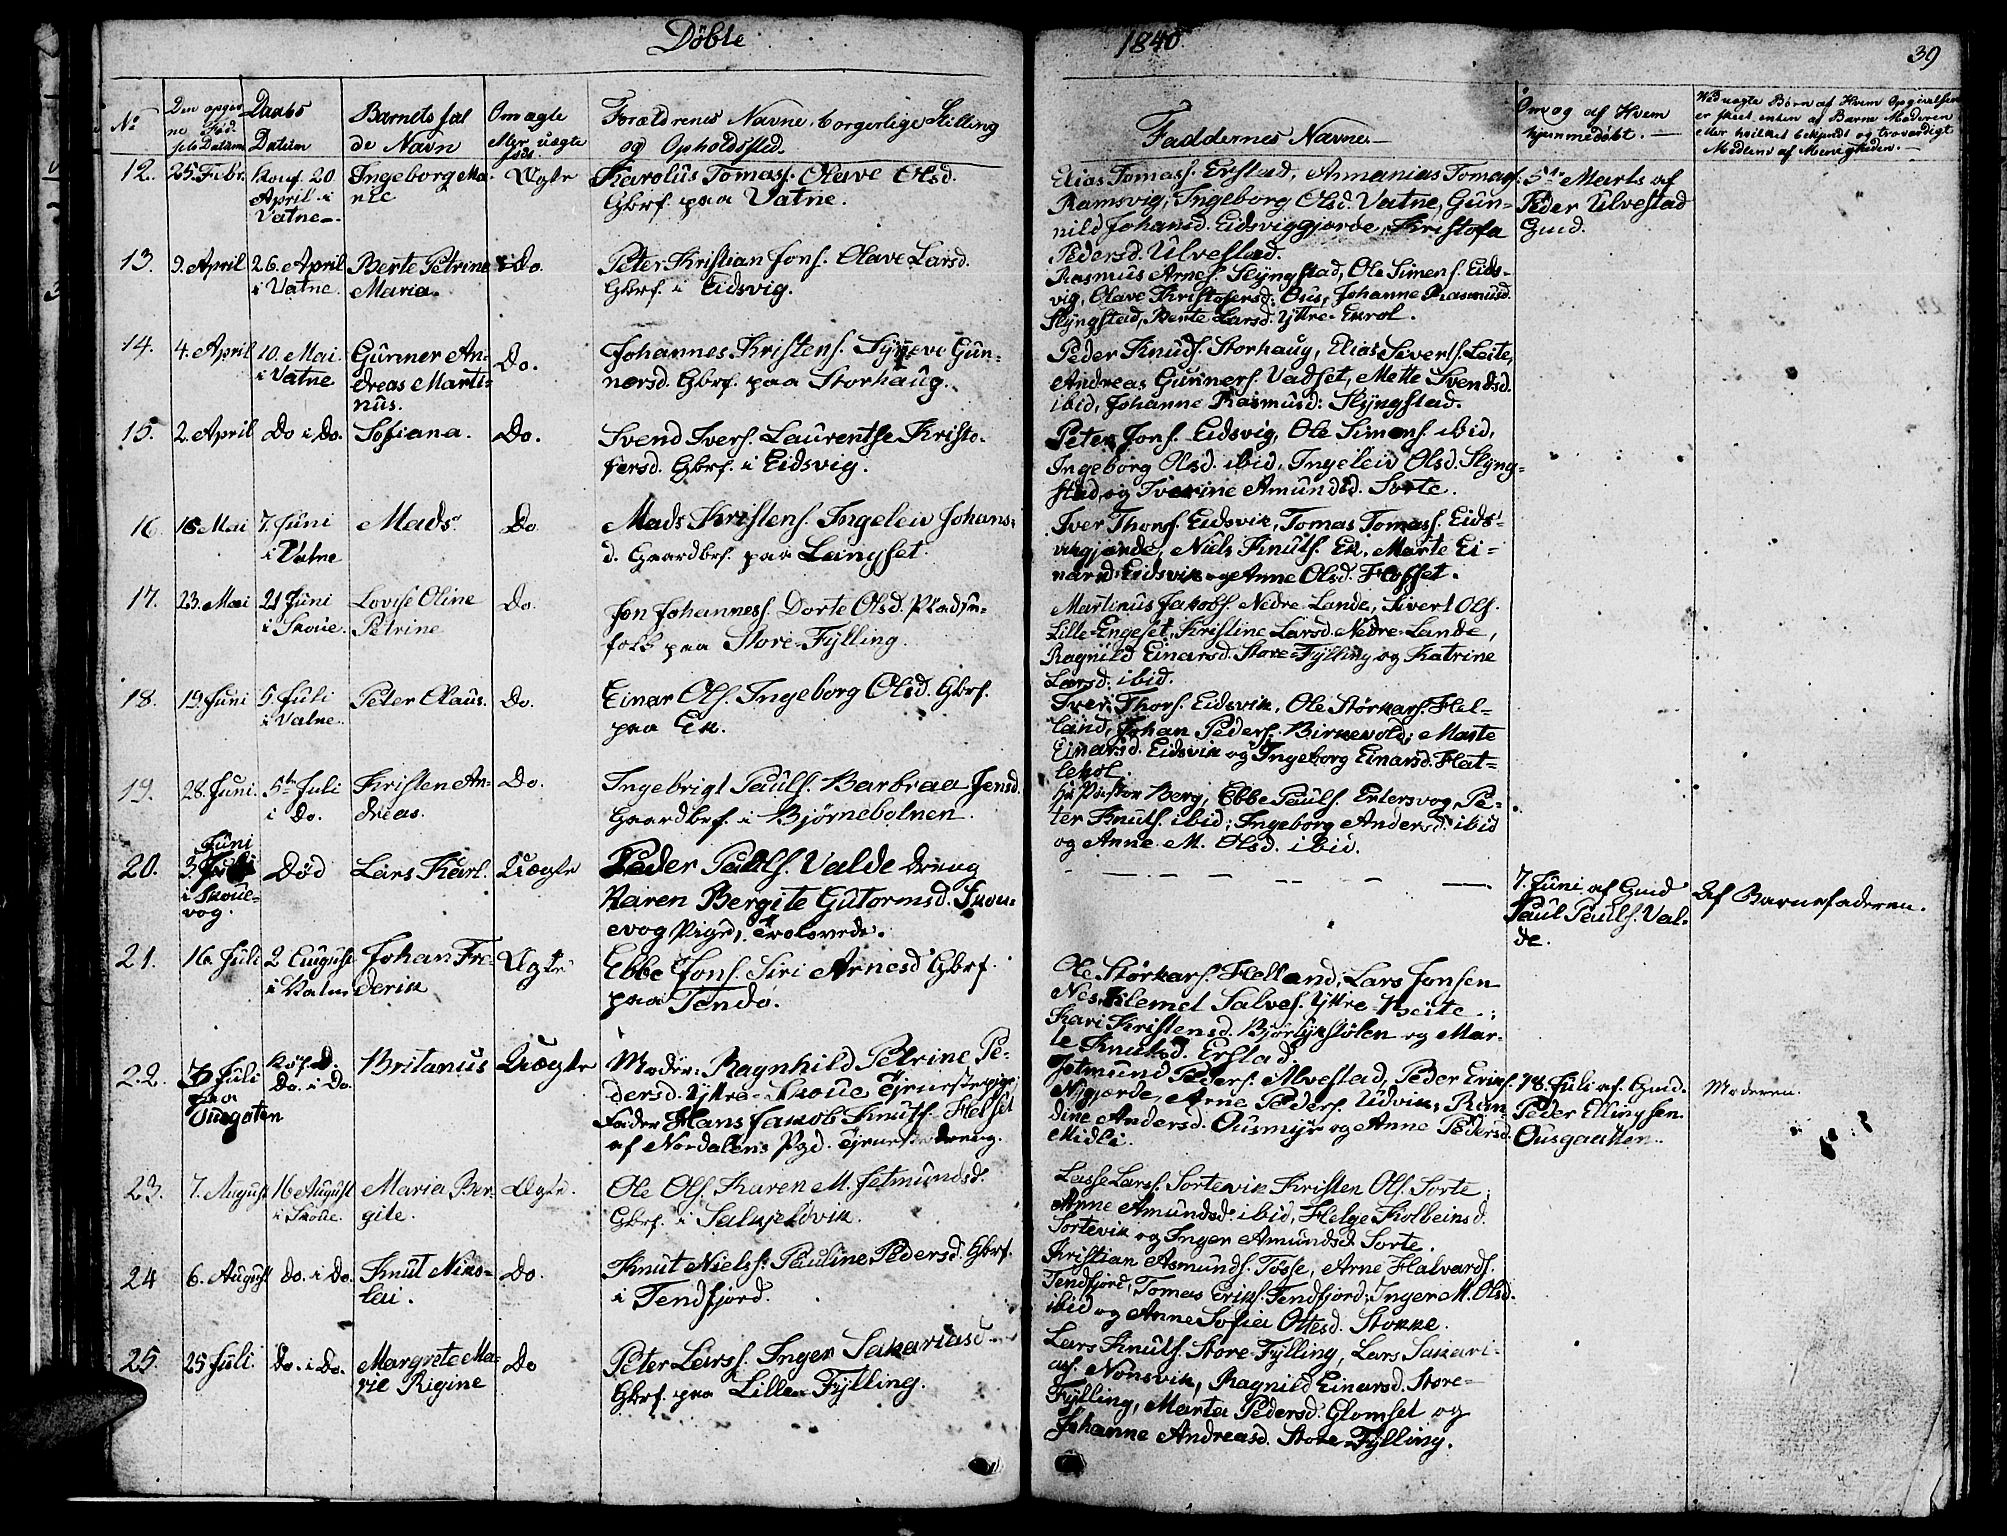 Döbte
1840
39
No
Den opgiv
ne Föd
sels Datum
Daabs
Datum
Barnets ful
de Navn
Om ægte
eller uægte
föds.
Forældrenes Navne, borgerlige Stilling
og Opholdssted.
Faddernes Navne.
Om og af Hvem
hjemmedöbt.
Ved uægte Börn af Hvem Opgivelsen
er skeet enten af Barne Moderen
eller hvilket bekjendt og troværdigt
Medlem af Menigheden.
12. 25. Febr. Konf. 20
April i
Vatne
Ingeborg Ma-
rie
Ægte
Karolus Tomass. Olave Olsd.
Gbrf. paa Vatne.
Elias Tomass. Erstad, Annanias Tomass.
Ramsvig, Ingeborg Olsd. Vatne, Gun-
nild Johansd. Eidsviggjærde, Kristofa
Pedersd. Ulvestad.
5te Marts af
Peder Ulvestad
Gmd.
13. 9. April 26. April
i Vatne.
Berte Petrine
Maria.
Do.
Peter Kristian Jons. Olave Larsd.
Gbrf. i Eidsvig.
Rasmus Arnes. Slyngstad, Ole Simens. Eids-
vig, Olave Kristofersd. Ous, Johanne Rasmusd.
Slyngstad, Berte Larsd. Yttre-
14. 4. April 10. Mai
i Vatne
Gunner An-
dreas Marti-
nus.
Do.
Johannes Kristens. Synneve Gun-
nersd. Gbrf. paa Storhaug.
Peder Knuds. Storhaug, Elias Severts. Leite,
Andreas Gunners. Vadset, Mette Svendsd.
ibid, Johanne Rasmusd. Slyngstad.
15. 2. April Do i Do. Sofiana. Do.
Svend Ivers. Laurentse Kristo-
fersd. Gbrf. i Eidsvig.
Peter Jons. Eidsvig, Ole Simens. ibid,
Ingeborg Olsd. ibid, Ingeleiv Olsd. Slyng-
stad og Iverine Amundsd. Sorte.
16. 16 Mai 7. Juni
i Vatne
Mads
Do
Mads Kristens. Ingeleiv Johans-
d. Gaardbrf. paa Langset.
Iver Thors. Eidsvik, Tomas Tomass. Eids-
vikgjærde, Niels Knuts. Ek. Marte Ei-
narsd. Eidsvik og Anne Olsd. Flosset.
17. 23. Mai 21 Juni
i Skoue.
Lovise Oline
Petrine
Do.
Jon Johanness. Dorte Olsd. Pladsu-
folk paa Store-Fylling.
Martinus Jakobs. Nedre-Lande, Sivert Ols.
Lille-Engeset, Kristine Larsd. Nedre-Lande,
Ragnild Einarsd. Store-Fylling og Katrine
Larsd. ibid.
18. 19. Juni 5. Juli
i Vatne.
Peter Olaus. Do.
Einar Ols. Ingeborg Olsd. Gbrf.
paa Ek.
Iver Thors. Eidsvik, Ole Störkars. Hel-
land, Johan Peders. Birkevold, Marte
Einarsd. Eidsvik og Ingeborg Einarsd. Flat-
lekol.
19. 28. Juni. 5te Juli
i Do.
Kristen An-
dreas.
Do.
Ingebrigt Pauls. Barbraa Jensd.
Gaardbrf. i Björnebotnen.
Hr. Pastor Berg, Ebbe Pauls. Ertersvog, Pe-
ter Knuts. ibid; Ingeborg Andersd. ibid
og Anne M. Olsd. ibid.
20. Juni
3. Juli
i Skoue-
vog.
Död
Lars Karl.
Uægte
Fader Pauls. Valde Dreng
Karen Bergite Gutormsd. Skou-
evog Pige,
7. Juni af Gmd
Paul Pauls. Val-
de.
Af Barnefaderen.
21. 16 Juli 2 August
i Vatne
Johan Fre-
derik
Ægte
Ebbe Jons. Siri Arnesd. Gbrf.
paa Tendö.
Ole Störkars. Helland, Lars Jonsen
Nes, Klemet Salves. Yttre-Leite;
Kari Kristensd. Björlykstölen og Mar-
te Knutsd. Erstad.
22. 7 Juli
paa
Ousgaten
Köf. d.
Do. i Do.
Britanus
Uægte
Moder: Ragnhild Petrine Pe-
dersd. Yttre-Skoue Tjenestepige;
Fader Hans Jakob Knuts. Helset
af Nordalens Pgd. Tjenestedreng.
Jetmund Peders. Alvestad, Peder Eriks.
Nygjærde, Arne Peders. Udvik; Ran-
dine Andersd. Ousmyr og Anne Pedersd.
Midli.
18. Juli af Gmd.
Peder Ellingsen
Ousgaatten.
Moderen.
23. 7. August 16 August
i Skoue.
Maria Ber-
gite.
Ægte.
Ole Ols. Karen M. Jetmundsd.
Gbrf. i Salkjeldvik.
Lasse Larss. Sortevik Kristen Ols. Sorte;
Anne Amundsd. ibid, Helge Kolbeinsd.
Sortevik og Inger Amundsd. Sorte.
24 6. August Do. i Do. Knut Niko-
lai.
Do.
Knut Nielss. Pauline Pedersd. Gbrf.
i Tendfjord.
Kristian Asmunds. Tösse, Arne Halvards.
Tendfjord, Tomas Eriks. Tendfjord; Inger M. Olsd.
ibid og Anne Sofia Ottesd. Stokke.
25. 25 Juli. Do. i Do. Margrete Ma-
rie Rigine
Do
Peter Larss. Inger Sakariasd.
Gbrf. paa Lille-Fylling.
Lars Knuts. Store-Fylling, Lars Sakari-
as. Nonsvik, Ragnild Einarsd. Store-
Fylling, Marta Pedersd. Glomset og
Johanne Andreasd. Store-Fylling.